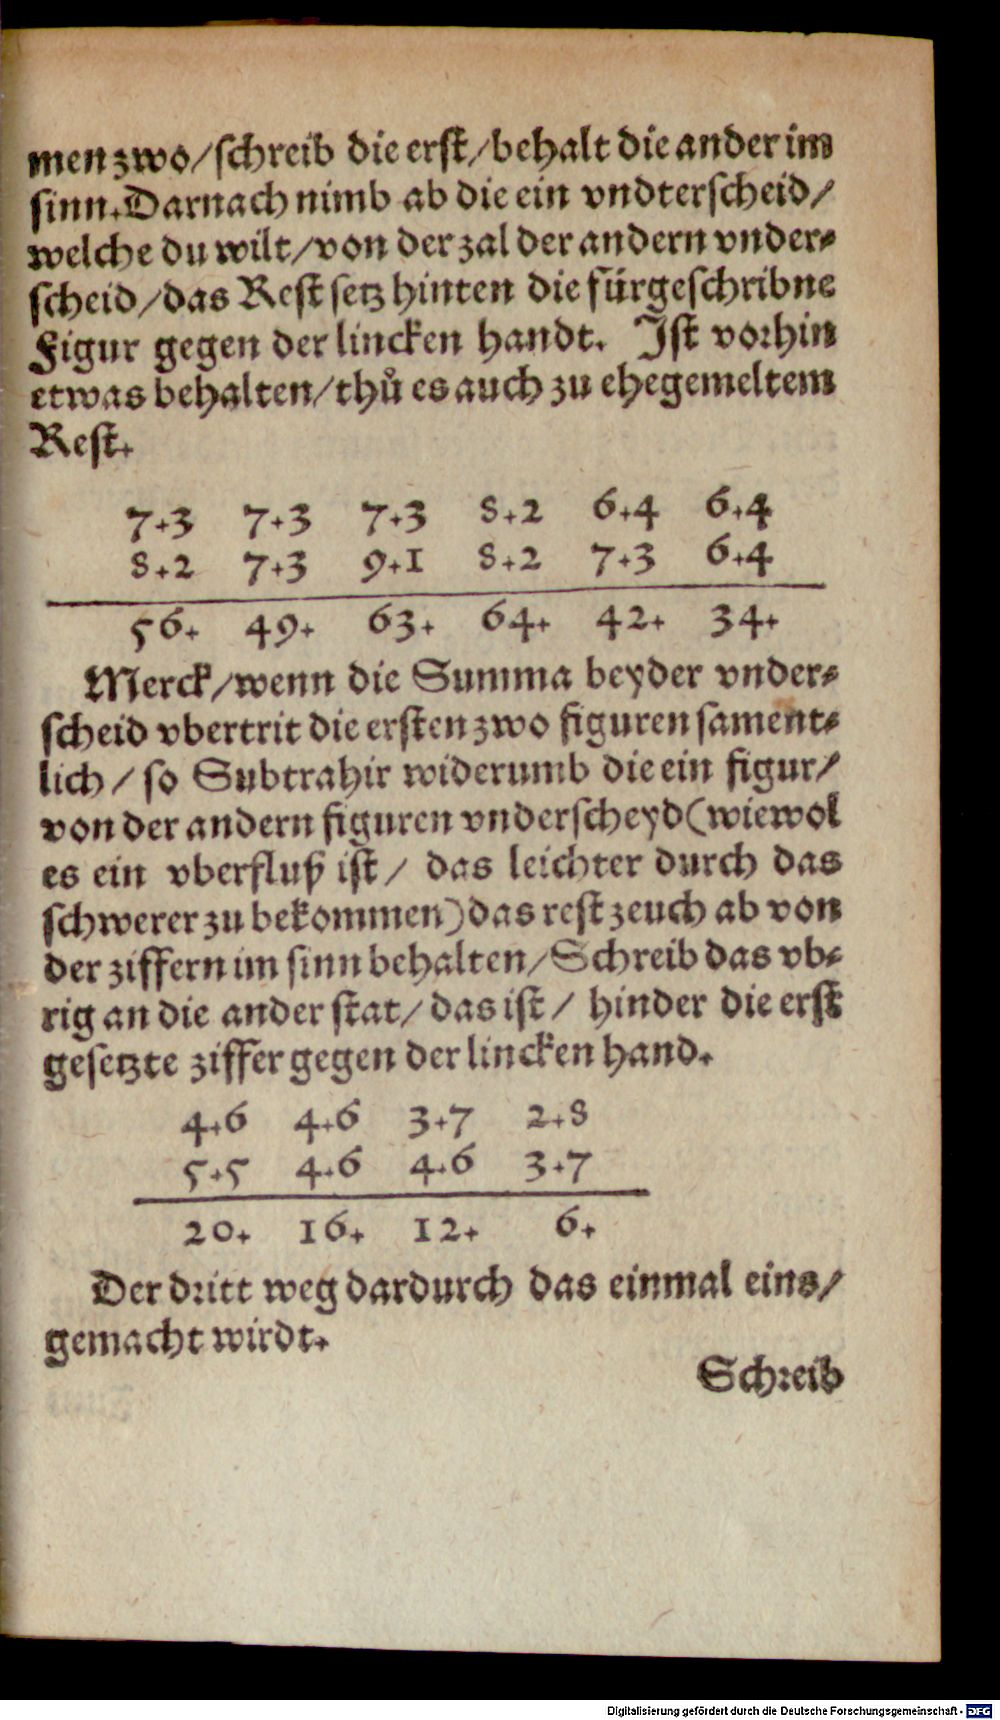 men zwo/schreib die erst/behalt die ander im
sinn. Darnach nimb ab die ein vndterscheid/
welche du wilt/von der zal der andern vnder-
scheid/das Rest setz hinten die fürgeschribne
Figur gegen der lincken handt. Ist vorhin
etwas behalten/thů es auch zu ehegemeltem
Rest.
7+3 7+3 7+3 8+2 6+4 6+4
8+2 7+3 9+1 8+2 7+3 6+4
56+ 49+ 63+ 64+ 42+ 34+
Merck/wenn die Summa beyder vnder-
scheid vbertrit die ersten zwo figuren sament-
lich/so Subtrahir widerumb die ein figur/
von der andern figuren vnderscheyd(wiewol
es ein vberfluß ist/ das leichter durch das
schwerer zu bekommen)das rest zeuch ab von
der ziffern im sinn behalten/Schreib das vb-
rig an die ander stat/das ist/ hinder die erst
gesetzte ziffer gegen der lincken hand.
4+6 4+6 3+7 2+8
5+5 4+6 4+6 3+7
20+ 16+ 12+ 6+
Der dritt weg dardurch das einmal eins/
gemacht wirdt.
Schreib
Digitalisierung gefördert durch die Deutsche Forschungsgemeinschaft - DFG